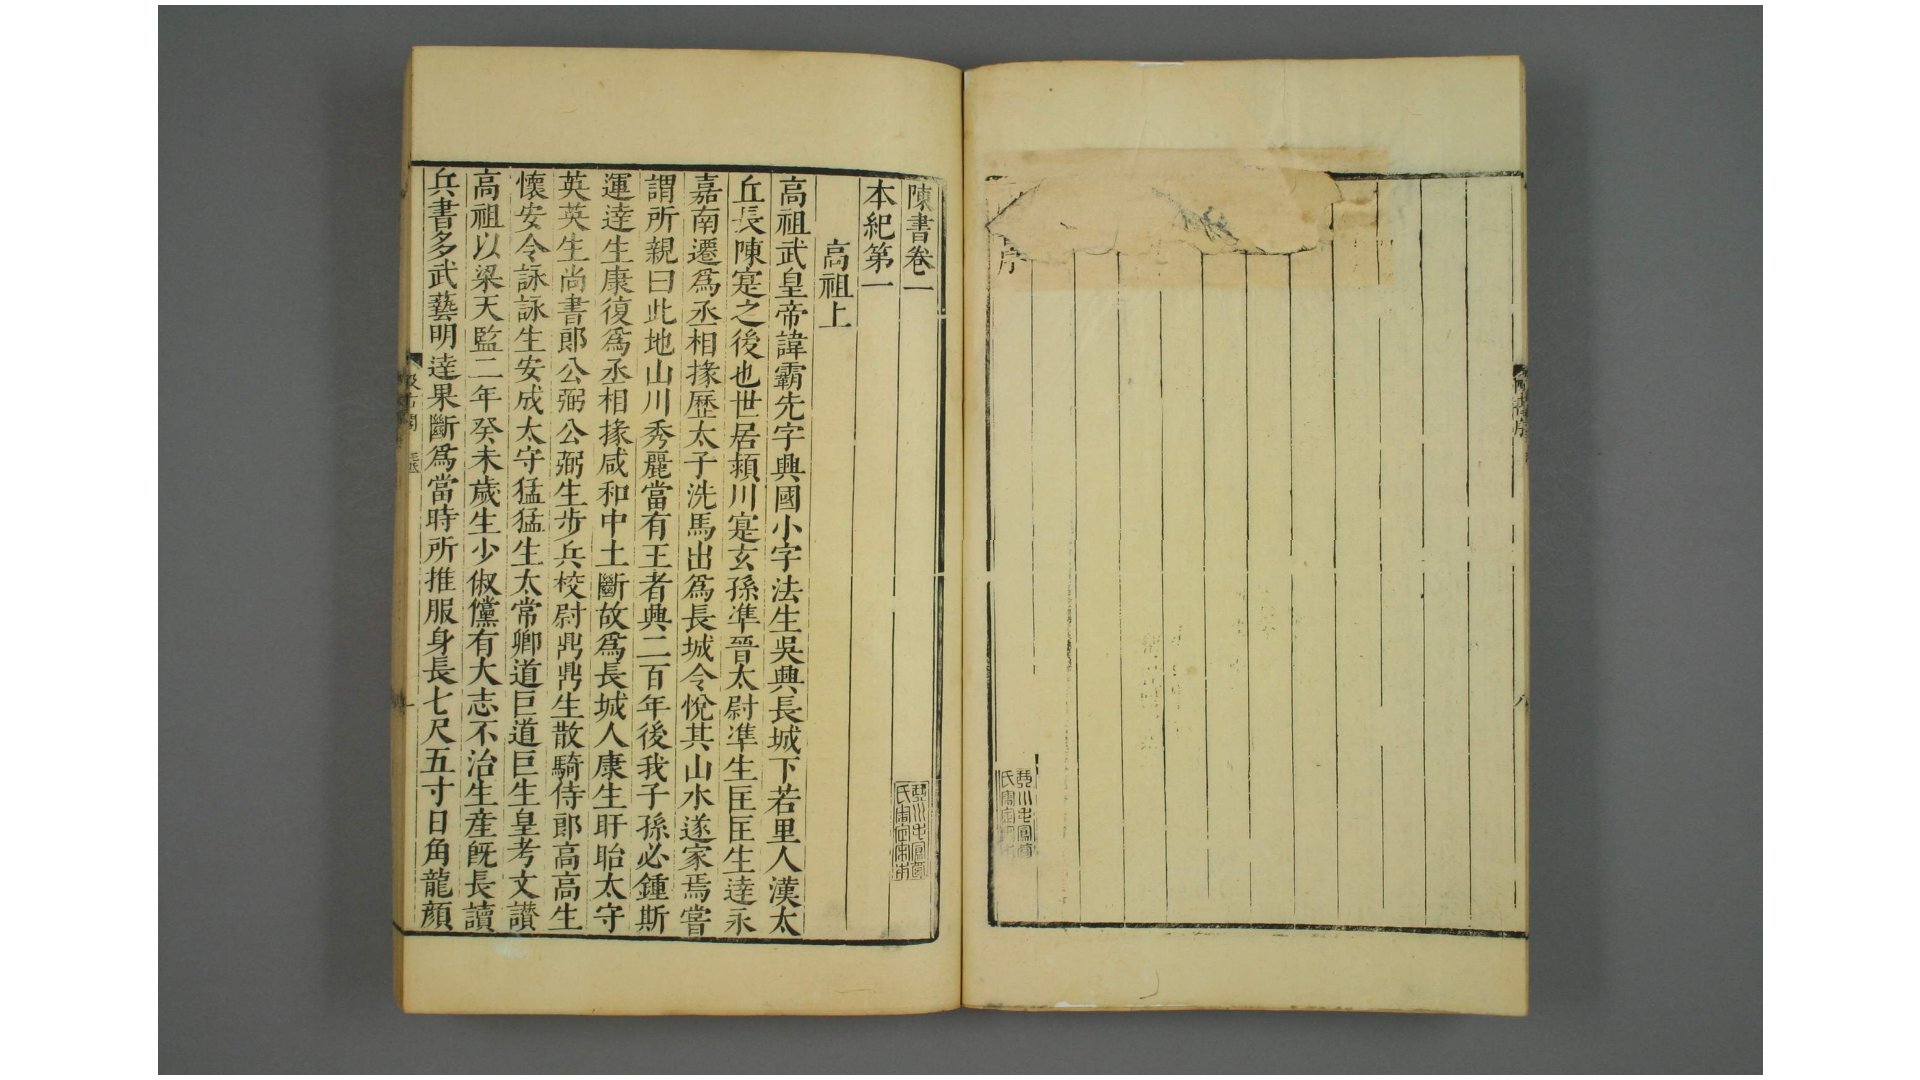 陳書序
八
序
陳書卷一
本紀第一
高祖上
高祖武皇帝諱霸先字興國小字法生吳興長城下若里人漢太
丘長陳寔之後也世居潁川寔玄孫準晉太尉準生匡匡生達永
嘉南遷爲丞相掾歷太子洗馬出爲長城令悅其山水遂家焉嘗
謂所親曰此地山川秀麗當有王者興二百年後我子孫必鍾斯
運達生康復爲丞相掾咸和中土斷故爲長城人康生盱眙太守
英英生尚書郎公弼公弼生步兵校尉鼎鼎生散騎侍郎高高生
懷安令詠詠生安成太守猛猛生太常卿道巨道巨生皇考文讃
高祖以梁天監二年癸未歲生少俶儻有大志不治生產旣長讀
兵書多武藝明達果斷爲當時所推服身長七尺五寸日角龍顏
汲古閣
一